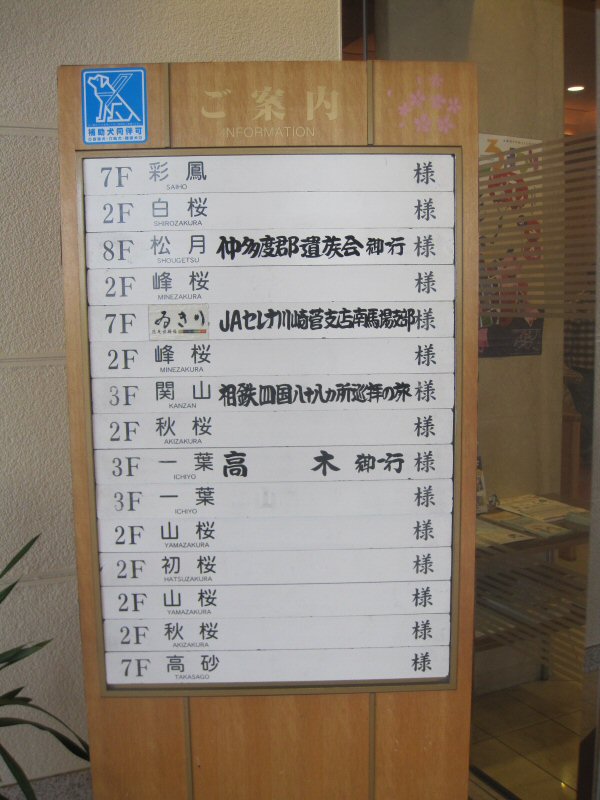 補助犬同伴可
ご案内
INFORMATION
7F 彩鳳 SAIHO 様
2F 白桜 SHIROZAKURA 様
8F 松月 SHOUGETSU 仲多度郡遺族会 御一行 様
2F 峰桜 MINEZAKURA 様
7F ゐきり JAセレサ川崎菅支店南馬場支部 様
2F 峰桜 MINEZAKURA 様
3F 関山 KANZAN 相鉄四国八十八カ所巡拝の旅 様
2F 秋桜 AKIZAKURA 様
3F 一葉 ICHIYO 高木 御一行 様
3F 一葉 ICHIYO 様
2F 山桜 YAMAZAKURA 様
2F 初桜 HATSUZAKURA 様
2F 山桜 YAMAZAKURA 様
2F 秋桜 AKIZAKURA 様
7F 高砂 TAKASAGO 様